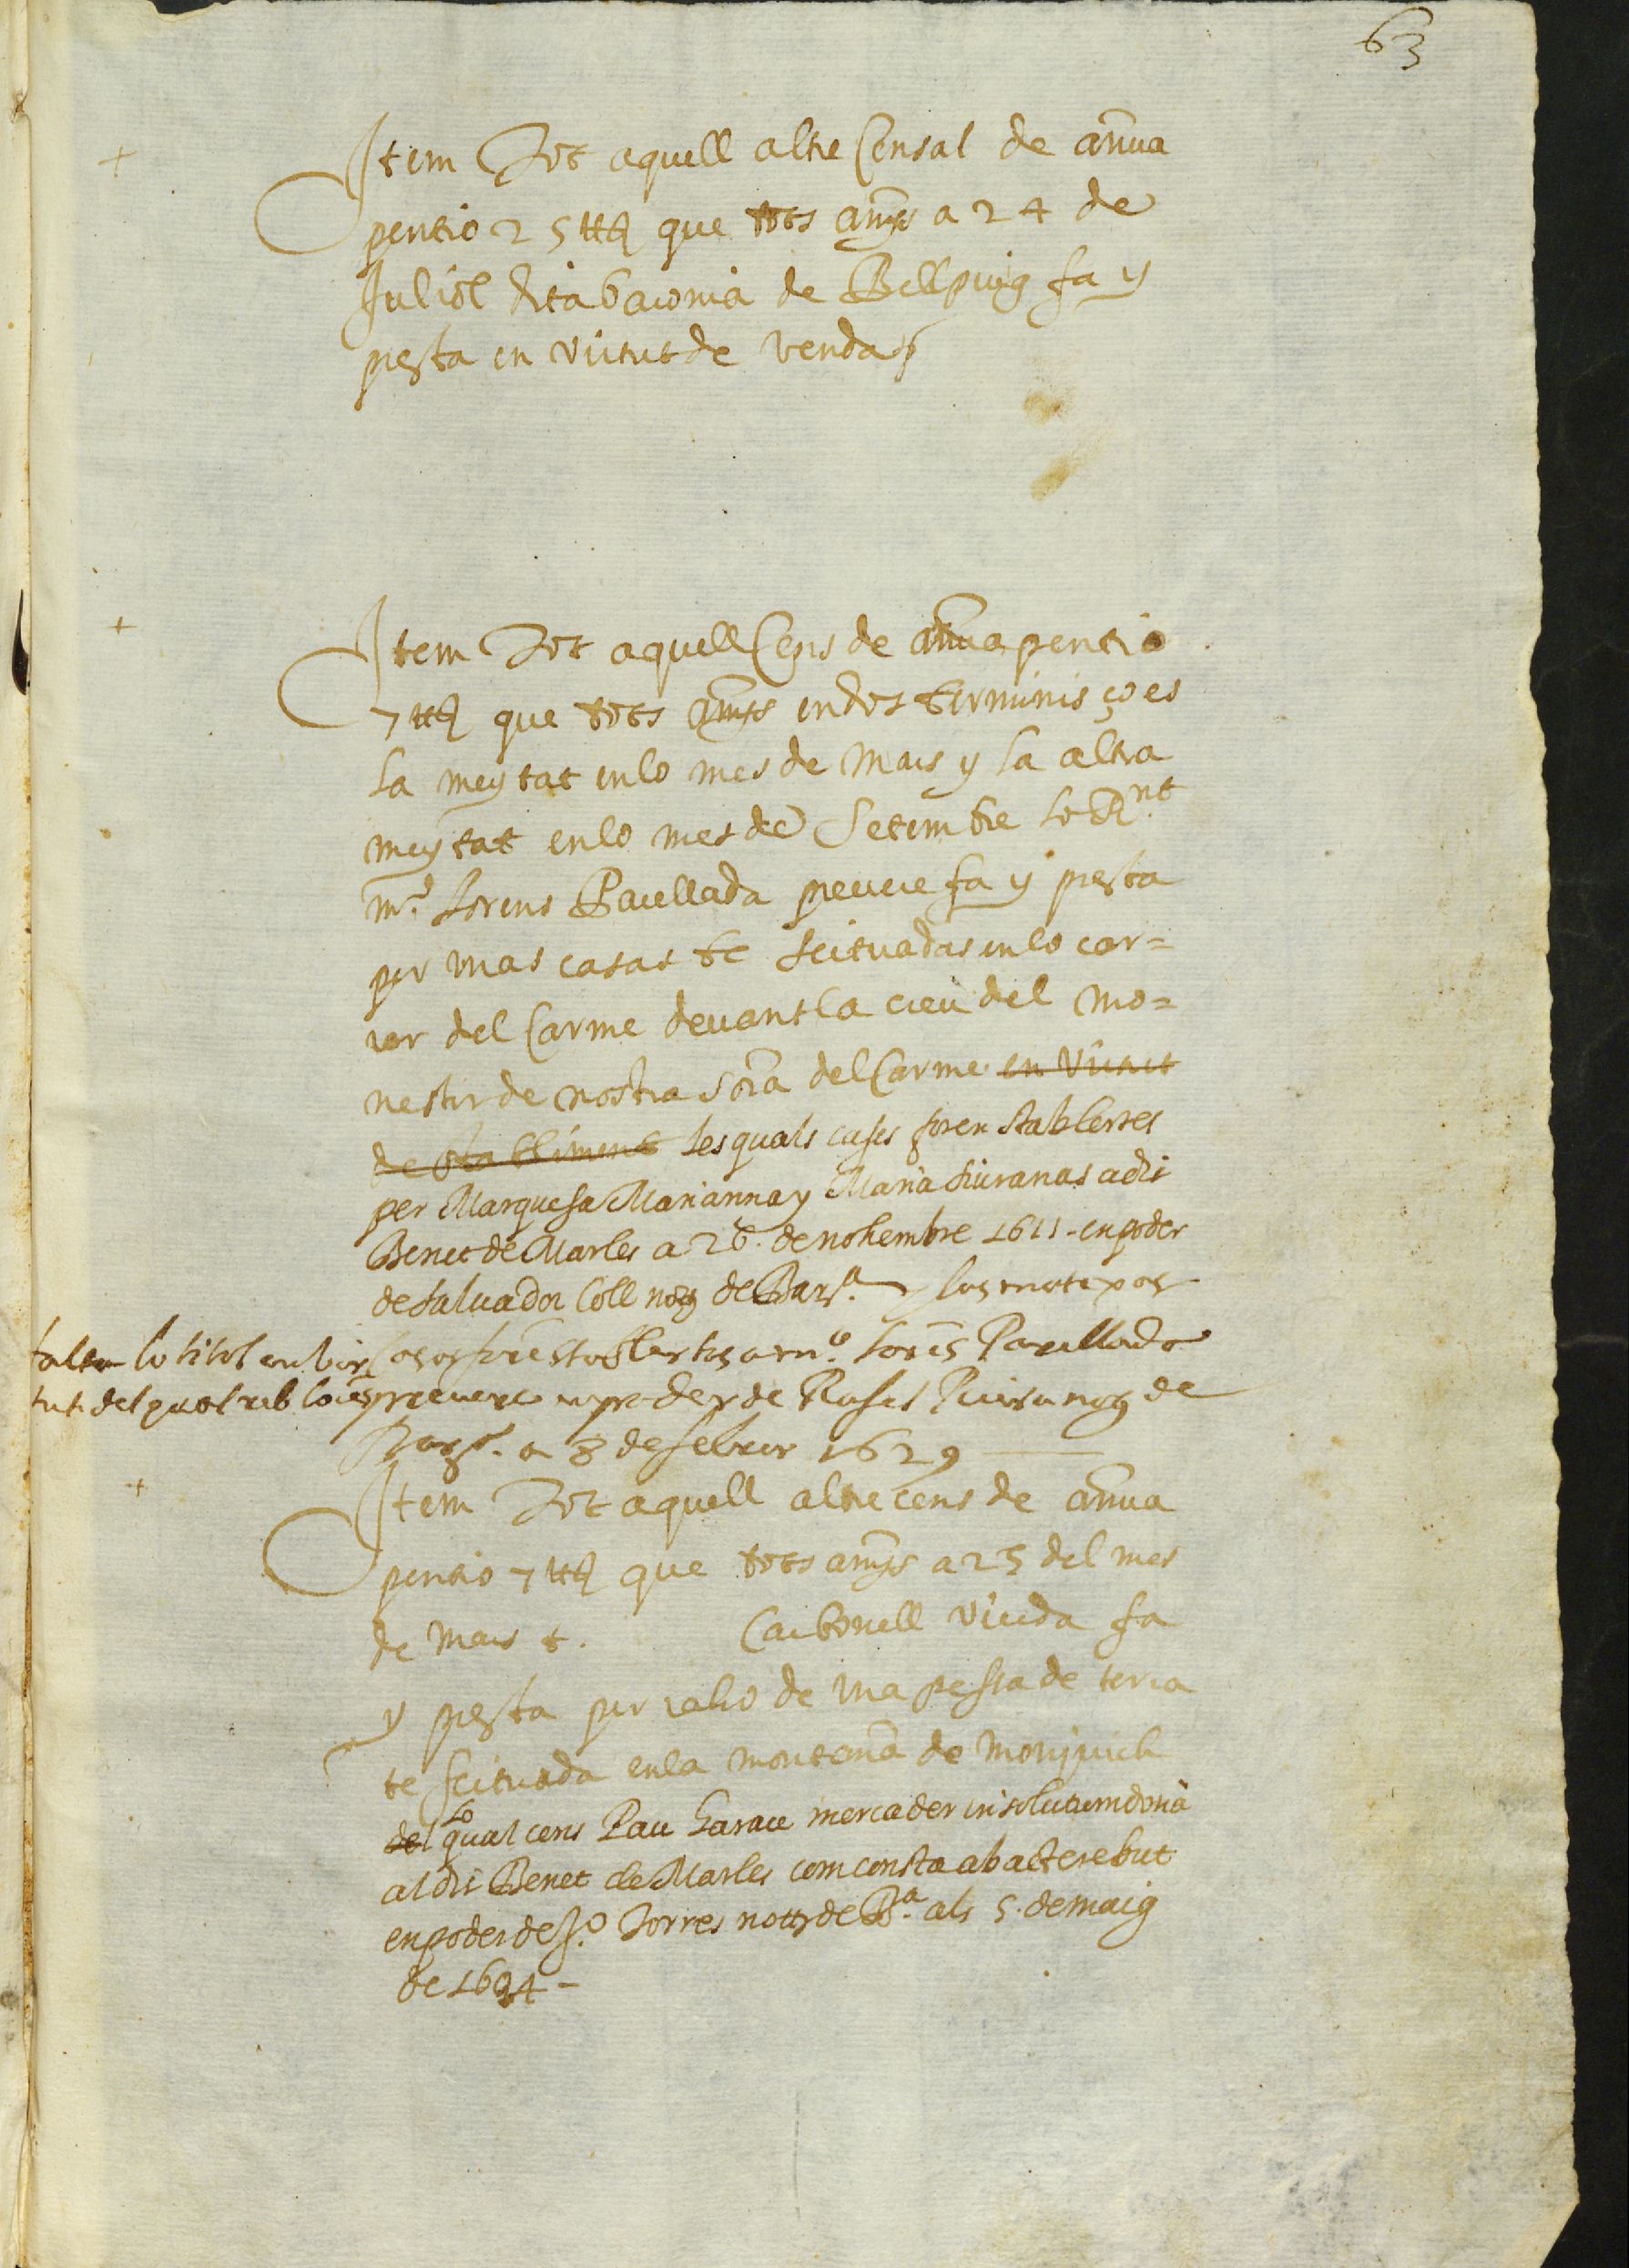 63
Item Tot aquell altre Censal de añua
pentio 25 ll que tots anys a 24 de
Juliol dita baronia de Bellpuig fa y
presta en virtut de venda
Item Tot aquell Cens de añua pentio
7 ll que tots anys en dos terminis ço es
la meytat en lo mes de Mars y la altra
meytat en lo mes de Setembre lo R.nt
m.º Lorens Parellada prevere fa y presta
per unas casas te scituadas en lo car=
rer del Carme devant la creu del Mo=
nestir de nostra sora del Carme en virtut
de stabliment les quals cases foren stablertes
per Marquesa Marianna y Maria Siuranas a dit
Benet de Marles a 26 de nohembre 1611 - en poder
de Saluador Coll noty de Bar.a y las matexas
falta lo titol en vir
tut del qual reb lo cens
casas foren stablertas a m.º Lorens Parellada
prevere en poder de Rafel Riera noty de
Bar.a a 8 de febrer 1629
Item Tot aquell altre cens de añua
pentio 7 ll que tots anys a 25 del mes
de Mars t. Carbonell viuda fa
y presta per raho de una pessa de terra
te scituada en la montaña de Monjuich
del lo qual cens Pau mercader insolutum dona
al dit Benet de Marles com consta ab acte rebut
en poder de J.º Torres notty de B.a als 5 de maig
de 1624 -